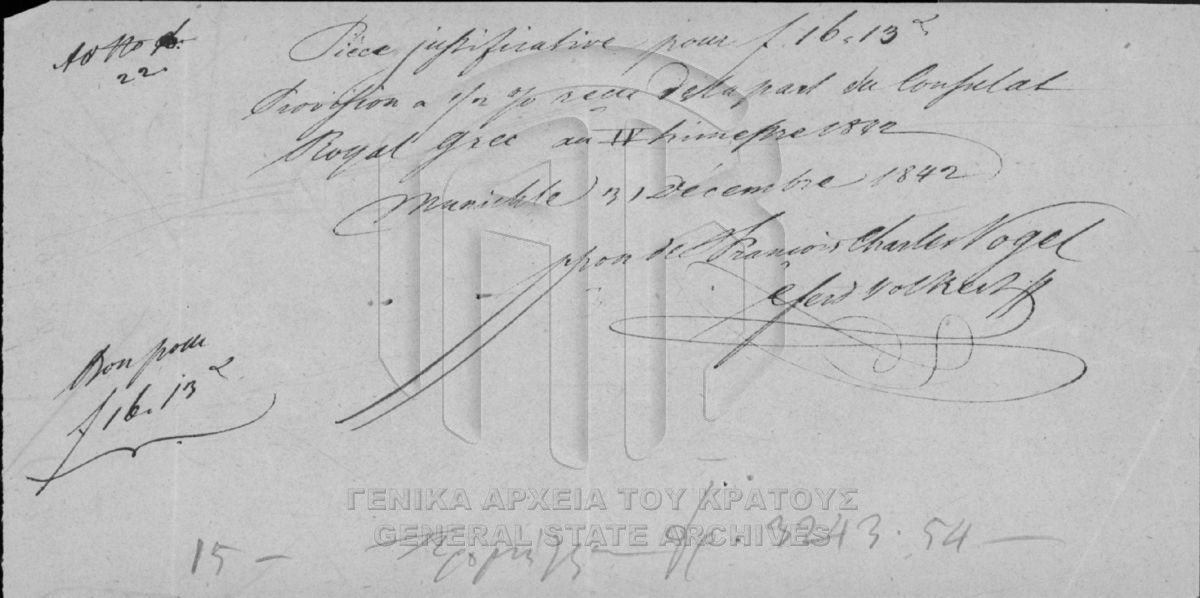 Ad No
22.
Pièce justificative pour f. 16. 13 x
Provision a 1/2 % recue de la part du Consulat
Royal Grec au IV trimestre 1842
Munich le 31 Décembre 1842
ppon de François Charles Vogel
Ferd Volkert
Bon pour
f 16. 13 x
ΓΕΝΙΚΑ ΑΡΧΕΙΑ ΤΟΥ ΚΡΑΤΟΥΣ
GENERAL STATE ARCHIVES
15 — 3243. 54 —